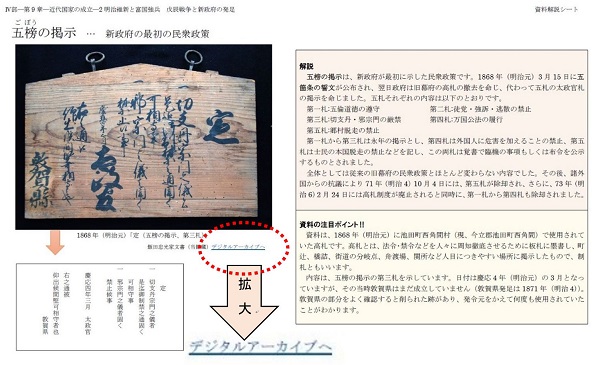 Ⅳ部―第9章―近代国家の成立―2 明治維新と富国強兵　戊辰戦争と新政府の発足
資料解説シート
ごぼう
五榜の掲示 … 新政府の最初の民衆政策
定
切支丹宗門之儀者
是迄御制禁之通固ク
可相守事
邪宗門之儀者固ク
禁止候事
慶應四年三月
太政官
敦賀縣
1868年（明治元）「定（五榜の掲示、第三札）
飯田忠光家文書（当館蔵）デジタルアーカイブへ
定
一 切支丹宗門之儀者
是迄御制禁之通固く
可相守事
一 邪宗門之儀者固く
禁止候事
慶応四年三月　太政官
右之通被
仰出候間堅可相守者也
敦賀県
拡大
デジタルアーカイブへ
解説
五榜の掲示は、新政府が最初に示した民衆政策です。1868年（明治元）3月15日に五
箇条の誓文が公布され、翌日政府は旧幕府の高札の撤去を命じ、代わって五札の太政官札
の掲示を命じました。五札それぞれの内容は以下のとおりです。
第一札:五倫道徳の遵守　第二札:徒党・強訴・逃散の禁止
第三札:切支丹・邪宗門の厳禁　第四札:万国公法の履行
第五札:郷村脱走の禁止
第一札から第三札は永年の掲示とし、第四札は外国人に危害を加えることの禁止、第五
札は士民の本国脱走の禁止などを記し、この両札は覚書で臨機の事項もしくは布令を公示
するものとされました。
全体としては従来の旧幕府の民衆政策とほとんど変わらない内容でした。その後、諸外
国からの抗議により71年（明治4）10月4日には、第五札が除却され、さらに、73年（明
治6）2月24日には高札制度が廃止されると同時に、第一札から第四札も除却されました。
資料の注目ポイント!!
資料は、1868年（明治元）に池田町西角間村（現、今立郡池田町西角間）で使用されて
いた高札です。高札とは、法令・禁令などを人々に周知徹底させるために板札に墨書し、町
辻、橋詰、街道の分岐点、舟渡場、関所など人目につきやすい場所に掲示したもので、制
札ともいいます。
内容は、五榜の掲示の第三札を示しています。日付は慶応4年（明治元）の3月となっ
ていますが、その当時敦賀県はまだ成立していません（敦賀県発足は1871年（明治4））。
敦賀県の部分をよく確認すると削られた跡があり、発令元をかえて何度も使用されていた
ことがわかります。